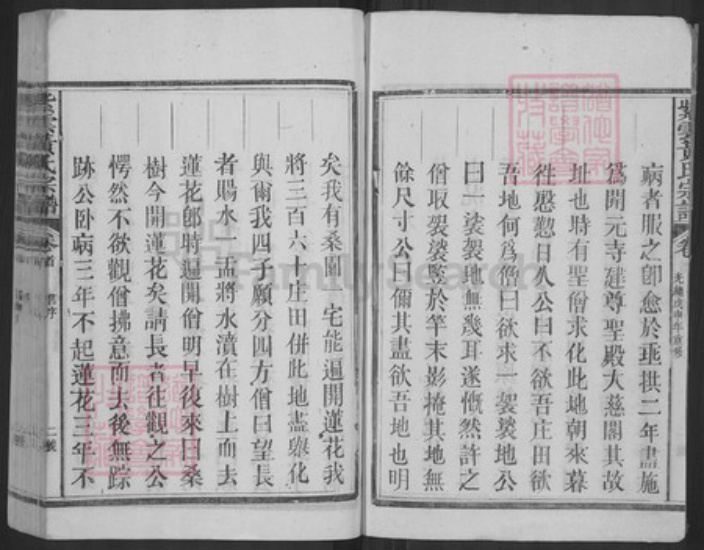 病者服之卽愈於垂拱二年盡施
爲開元寺建尊聖殿大慈閣其故
址也時有聖僧求化此地朝來暮
徃慇懃日久公曰不欲吾庄田欲
吾地何爲僧曰欲求一袈裟地公
曰一袈裟地無幾耳遂慨然許之
僧取袈裟竪於竿末影掩其地無
餘尺寸公曰爾其盡欲吾地也明
矣我有桑園一宅能遍開蓮花我
將三百六十庄田併此地盡舉化
與爾我四子願分四方僧曰望長
者賜水一盂將水漬在樹上而去
蓮花卽時遍開僧明早復來曰桑
樹今開蓮花矣請長者徃觀之公
愕然不欲觀僧拂意而去後無踪
跡公卧病三年不起蓮花三年不
紫雲黃氏宗譜
卷
光緒戊申年重修
紫雲黃氏宗譜
卷首
序
二
FamilySearch